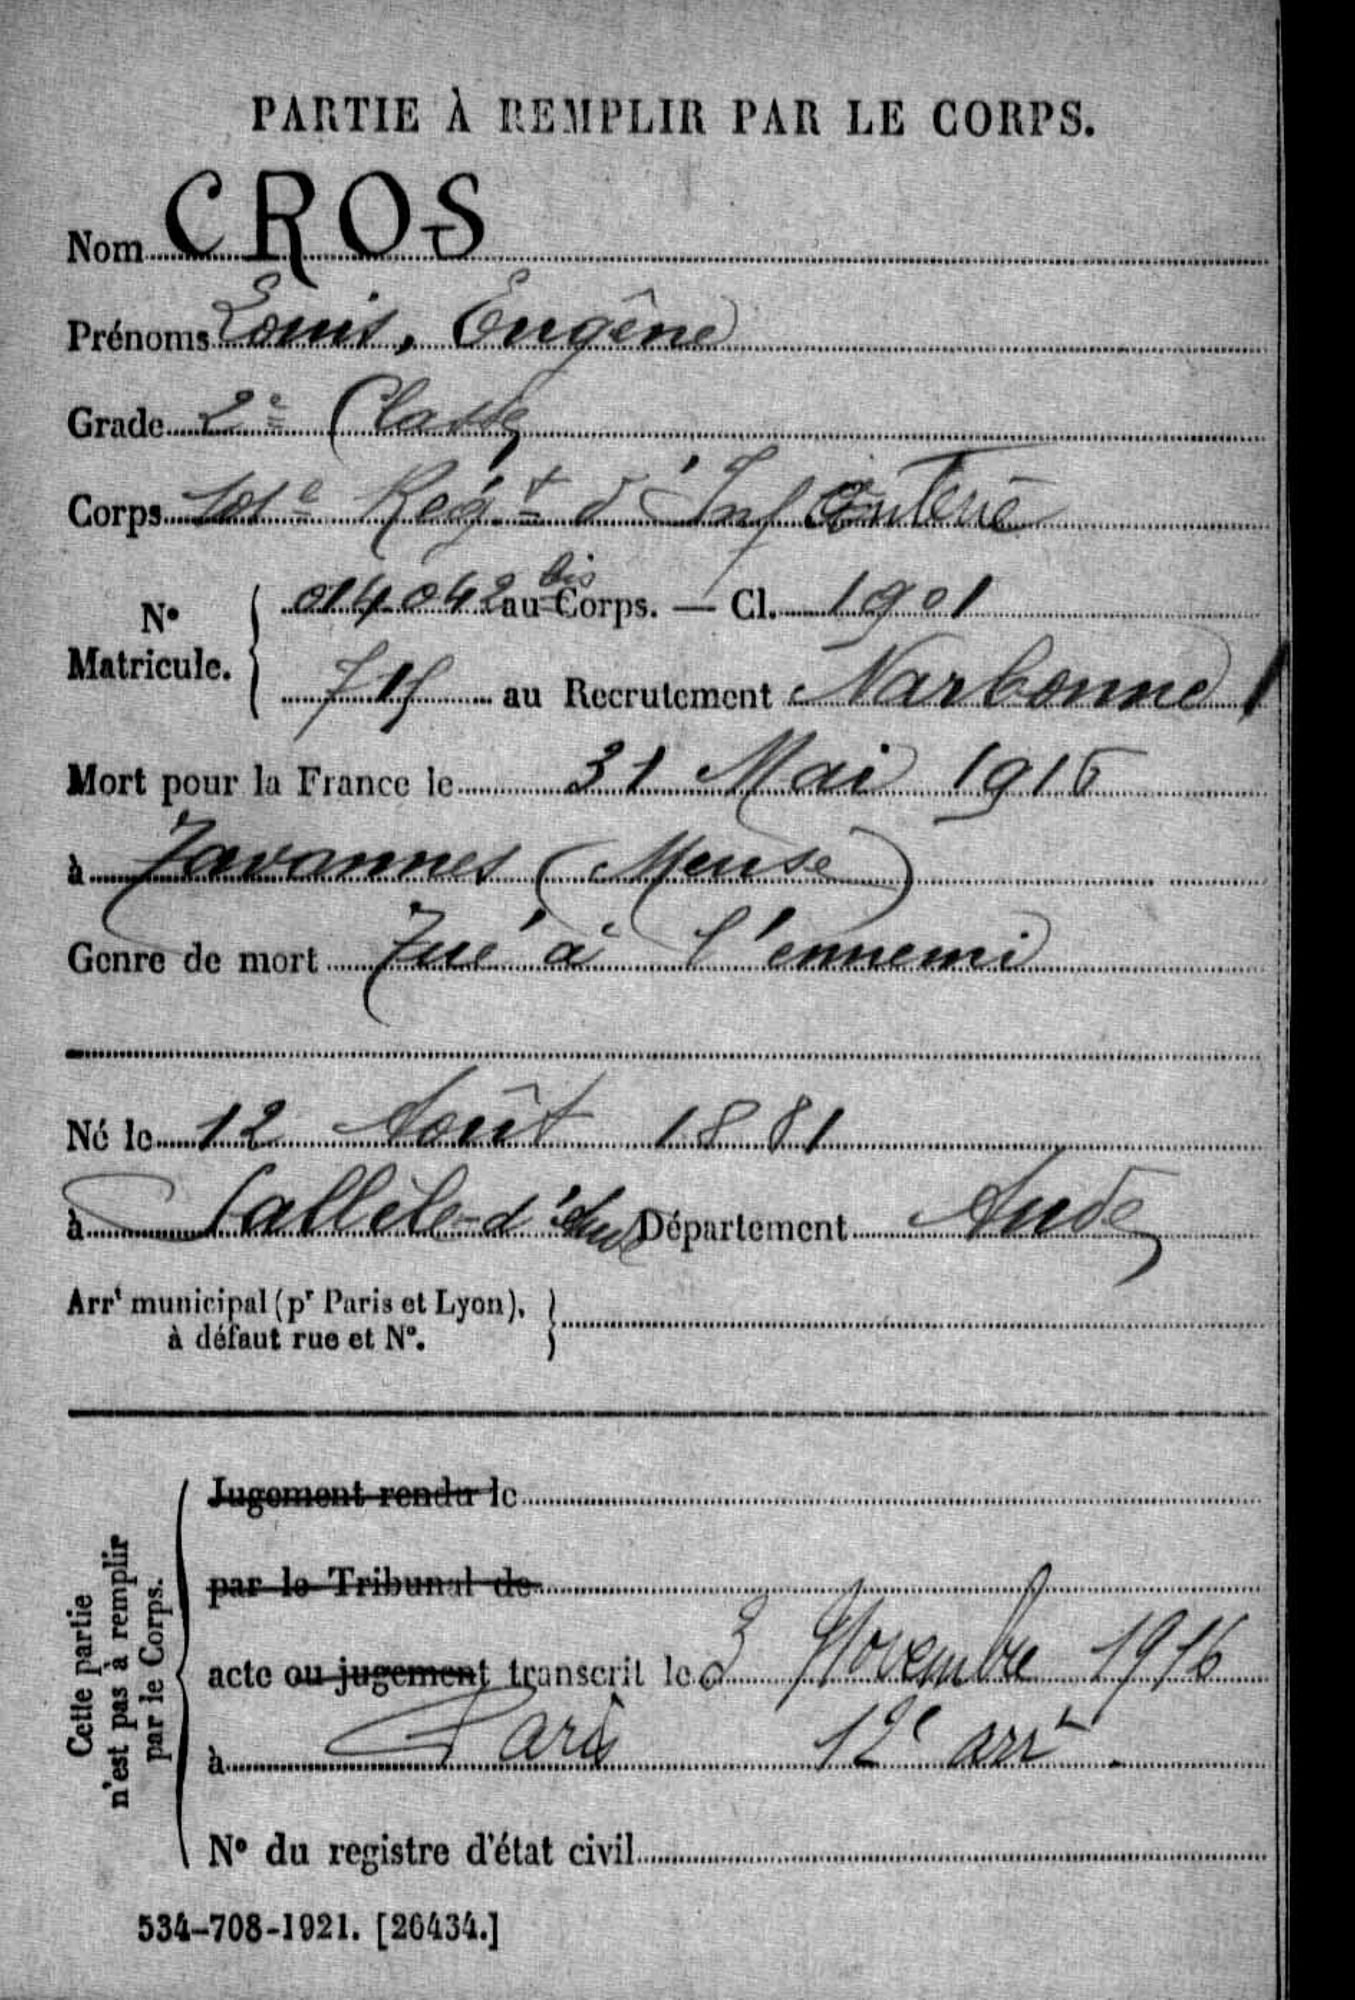 PARTIE À REMPLIR PAR LE CORPS.
Nom CROS
Prénoms Louis, Eugêne
Grade 2e Classe
Corps 101e Régt d'Infanterie
No Matricule. 014042 bis au Corps. — Cl. 1901
au Recrutement Narbonne
Mort pour la France le 31 Mai 1916
à Tavannes (Meuse)
Genre de mort Tué à l'ennemi
Né le 12 Août 1881
à d'Aude Département Aude
Arrt municipal (pr Paris et Lyon),
à défaut rue et No.
Cette partie
n'est pas à remplir
par le Corps.
Jugement rendu le
par le Tribunal de
acte ou jugement transcrit le 3 Novembre 1916
à Paris 12e arrt.
No du registre d'état civil
534-708-1921. [26434.]